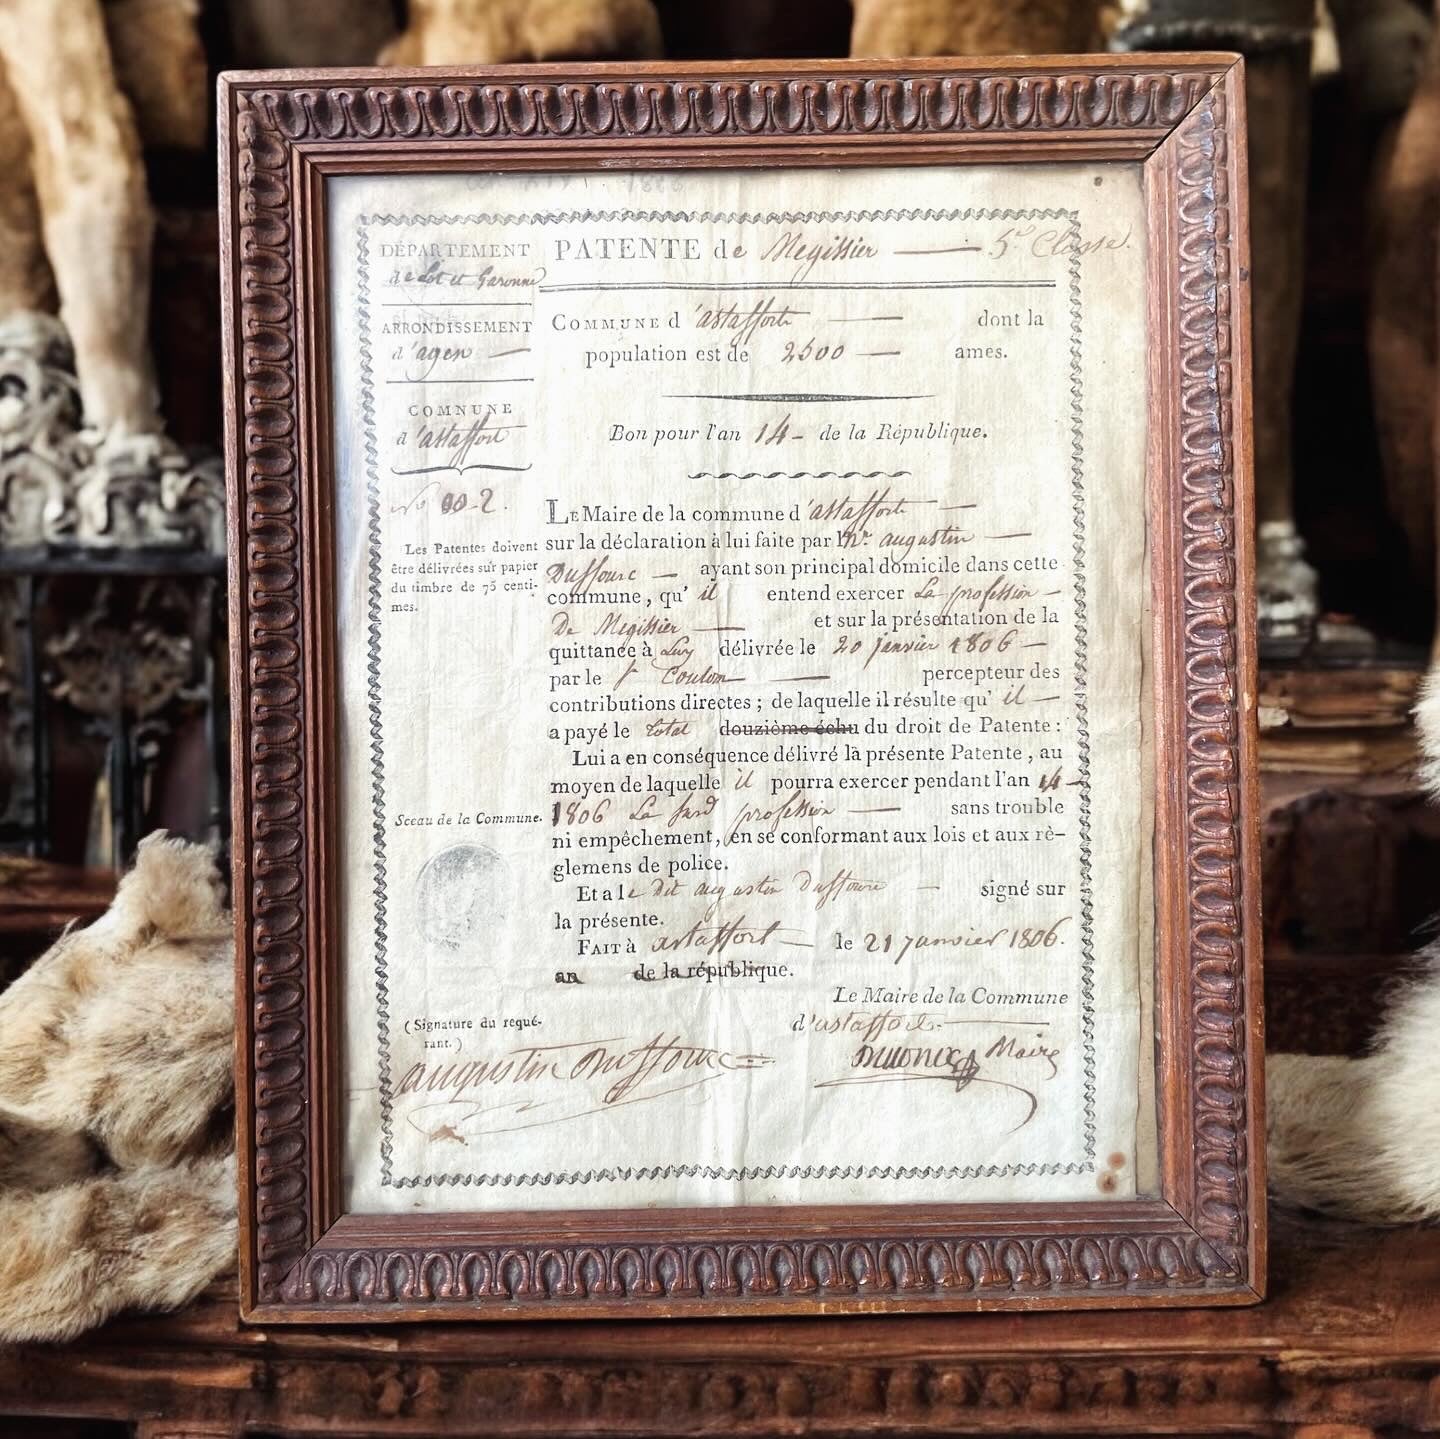 DÉPARTEMENT
de Lot et Garonne
ARRONDISSEMENT
d'agen
COMMUNE
d'astaffort
No 00-2.
Les Patentes doivent
être délivrées sur papier
du timbre de 75 centi-
mes.
Sceau de la Commune.
PATENTE de Megissier 5e Classe.
COMMUNE d'astafforte dont la
population est de 2500 ames.
Bon pour l'an 14 de la République.
LE Maire de la commune d'astafforte
sur la déclaration à lui faite par Mr. augustin
Duffourc ayant son principal domicile dans cette
commune, qu' il entend exercer La profession
De Megissier et sur la présentation de la
quittance à Luy délivrée le 20 janvier 1806
par le Sr Coulom percepteur des
contributions directes ; de laquelle il résulte qu' il
a payé le total douzième échu du droit de Patente :
Lui a en conséquence délivré la présente Patente, au
moyen de laquelle il pourra exercer pendant l'an 14
1806 La profession sans trouble
ni empêchement, en se conformant aux lois et aux ré-
glemens de police.
Et a le dit augustin Duffourc signé sur
la présente.
FAIT à astaffort le 21 janvier 1806.
an de la république.
Le Maire de la Commune
d'astaffort
Maire
(Signature du requé-
rant.)
augustin Duffourc